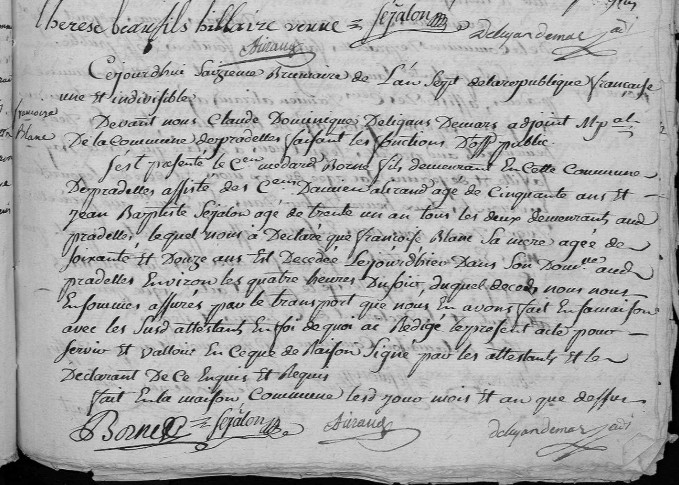 therese beaufils hillaire venue Sejalon
Auraud Deligandemars adj
Cejourdhui Saizieme Brumaire de L'an Sept de la republique francaise
une Et indivisible
francoise
Blanc
Devant nous Claude Dominique Deligans Demars adjoint Mpal
De la commune de pradelles faisant les fonctions D'off public
S'est pasenté le Cen medard Borne fils demeurant En Cette Commune
De pradelles assisté des Cens Damien auraud agé de Cinquante ans Et
jean Baptiste Sejalon agé de trente un an tous les deux demeurants aud
pradelles, lequel nous à Declaré que francoise Blanc Sa mere agée de
soixante Et Douze ans Est Decedée Cejourdhier Dans Son Domile aud
pradelles Environ les quatre heures Du soir, duquel deceds nous nous
En sommes assures par le transport que nous En avons fait En sa maison
avec les Susd attestants En foi de quoi ai Redigé le present acte pour
servir Et valloir En Ceque de Raison Signé par les attestants Et le
Declarant De Ce Enquis Et Requis
fait En la maison Commune lesd jour mois Et an que dessus
Borne Sejalon Auraud Deligandemars adj